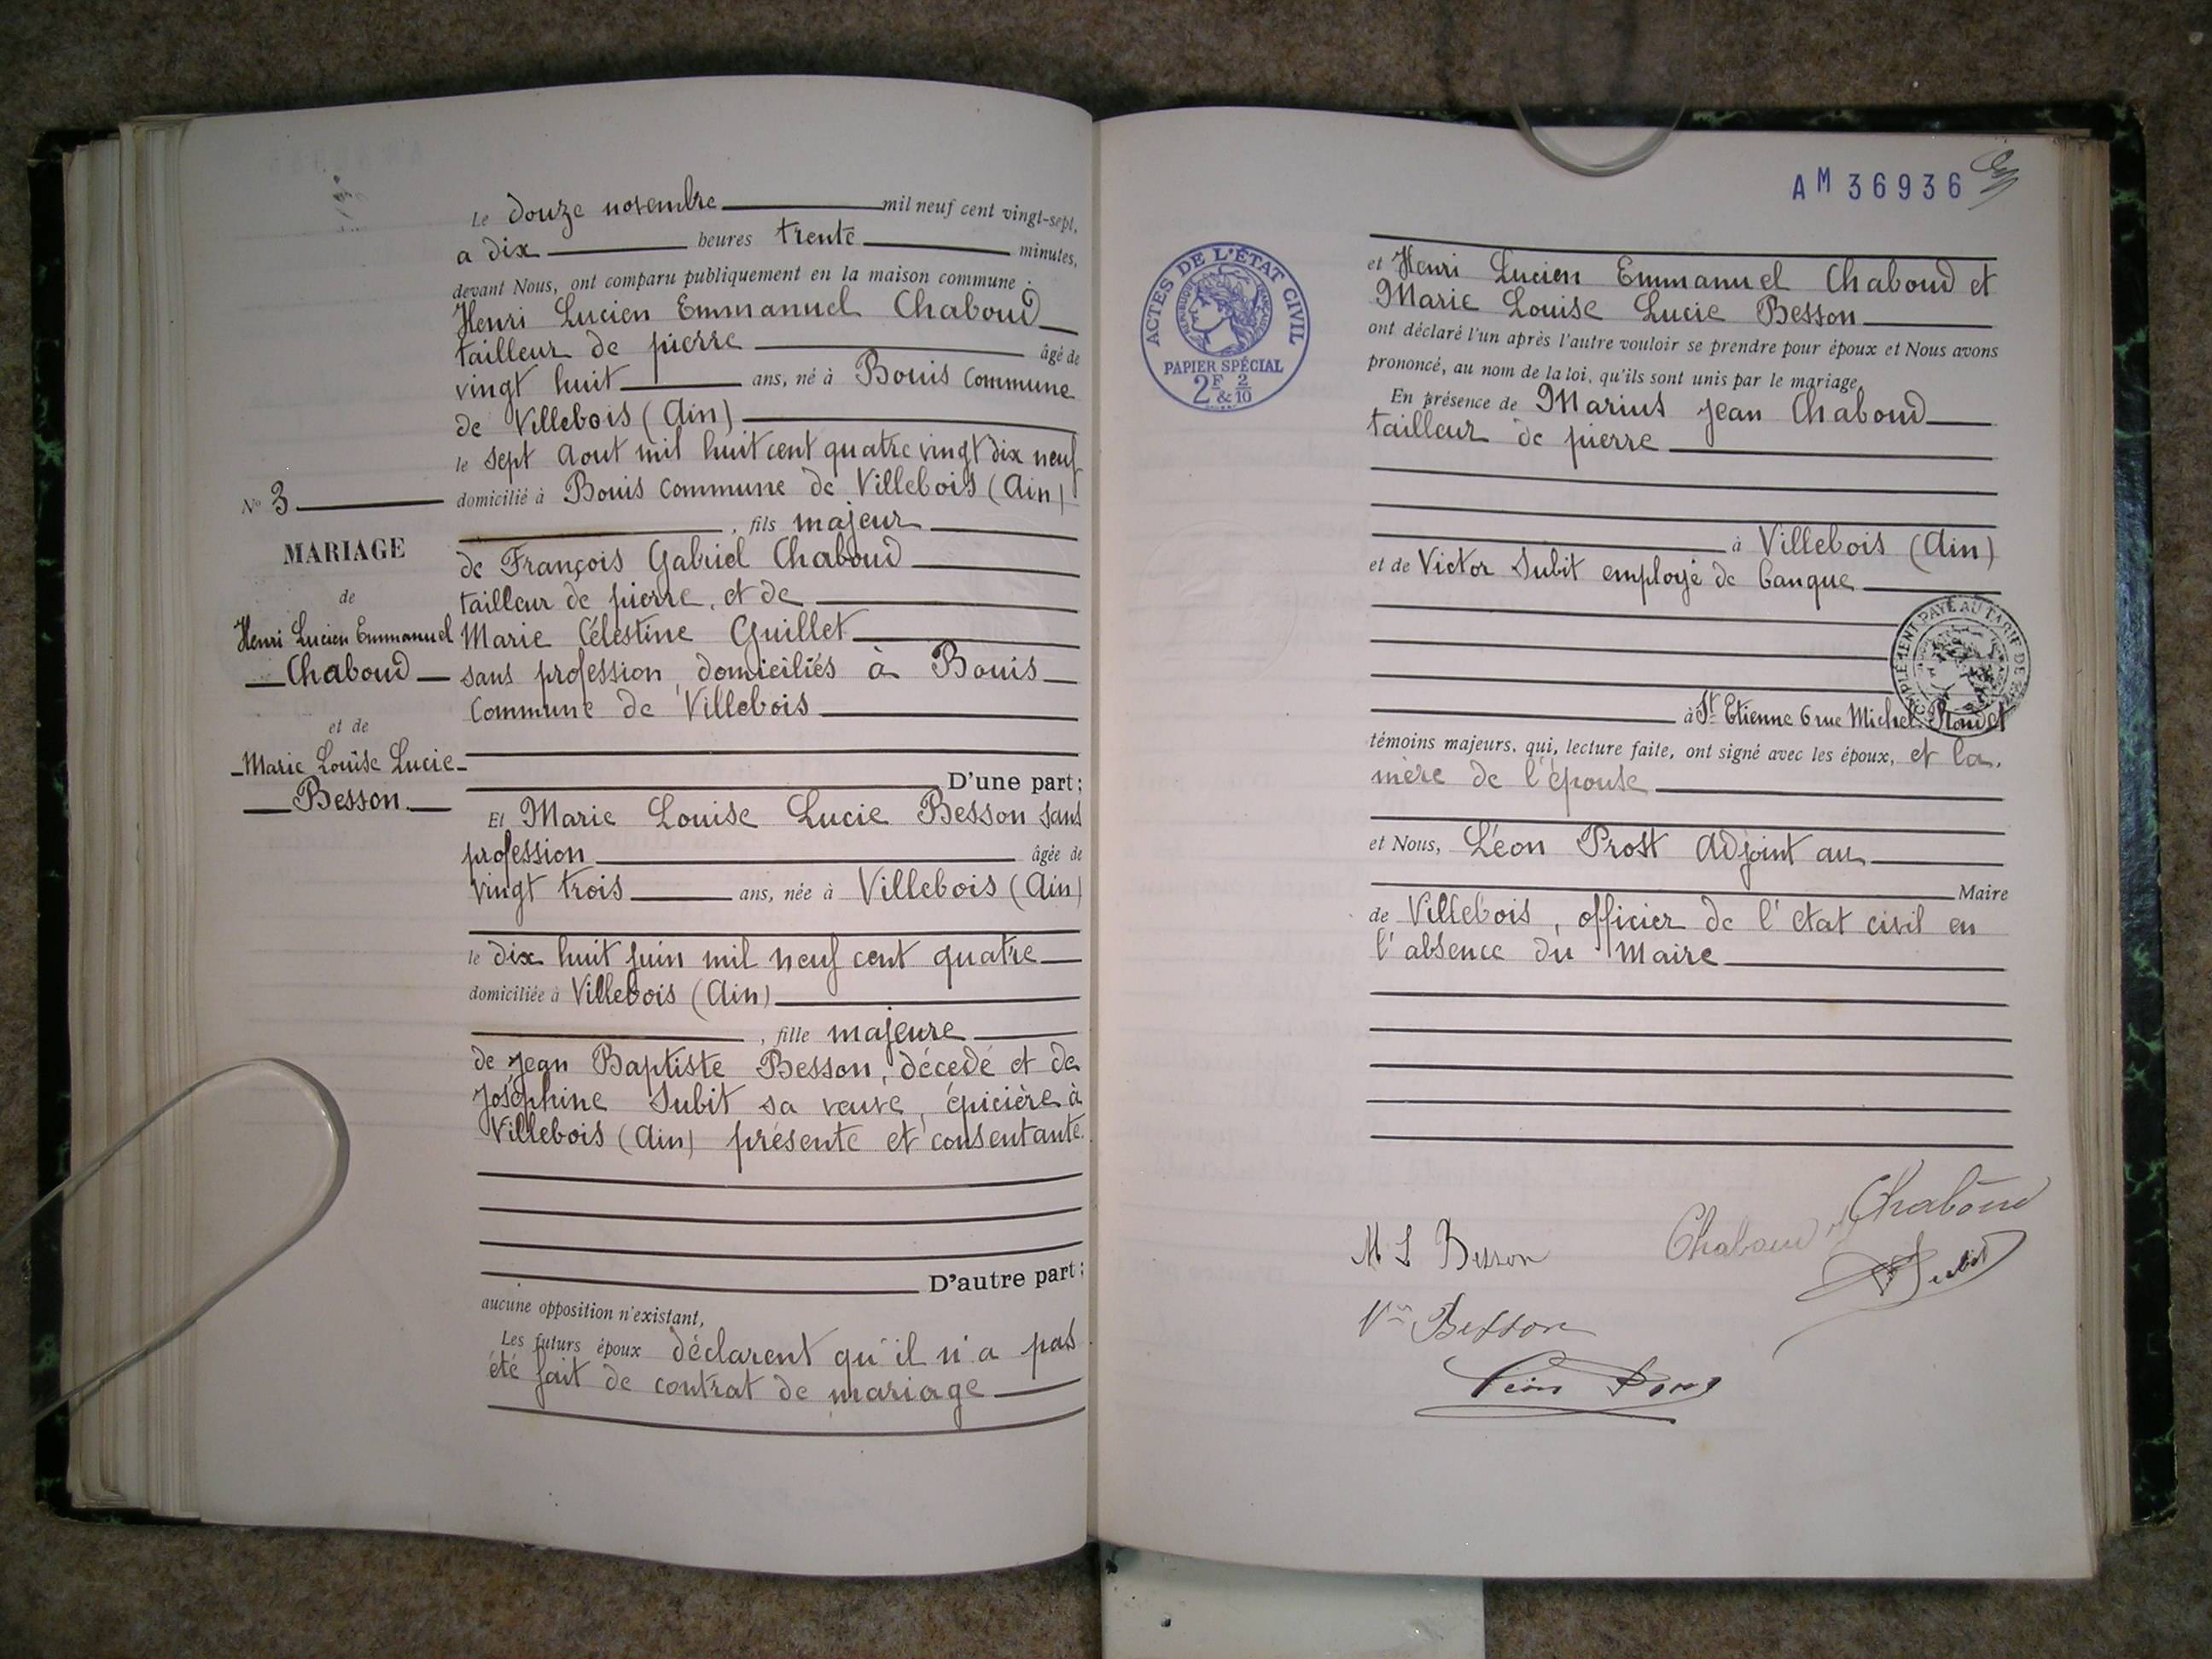 Le douze novembre mil neuf cent vingt-sept,
a dix heures trente minutes,
devant Nous, ont comparu publiquement en la maison commune :
Henri Lucien Emmanuel Chaboud
tailleur de pierre âgé de
vingt huit ans, né à Bouis commune
de Villebois (Ain)
le sept Aout mil huit cent quatre vingt dix neuf
domicilié à Bouis commune de Villebois (Ain)
, fils majeur
de François Gabriel Chaboud
tailleur de pierre, et de
Marie Célestine Guillet
sans profession, domiciliés à Bouis
Commune de Villebois
D'une part ;
Et Marie Louise Lucie Besson sans
profession âgée de
vingt trois ans, née à Villebois (Ain)
le dix huit juin mil neuf cent quatre
domiciliée à Villebois (Ain)
, fille majeure
de Jean Baptiste Besson, décedé et de
Joséphine Subit sa veuve, épicière à
Villebois (Ain) présente et consentante.
D'autre part ;
aucune opposition n'existant,
Les futurs époux déclarent qu'il n'a pas
été fait de contrat de mariage
N° 3
MARIAGE
de
Henri Lucien Emmanuel
Chaboud
et de
Marie Louise Lucie
Besson
AM 36936
ACTES DE L'ÉTAT CIVIL
RÉPUBLIQUE FRANÇAISE
PAPIER SPÉCIAL
2F & 2/10
et Henri Lucien Emmanuel Chaboud et
Marie Louise Lucie Besson
ont déclaré l'un après l'autre vouloir se prendre pour époux et Nous avons
prononcé, au nom de la loi, qu'ils sont unis par le mariage.
En présence de Marius Jean Chaboud
tailleur de pierre
à Villebois (Ain)
et de Victor Subit employé de banque
PAYÉ AU TARIF DE
à St Etienne 6 rue Michel Rondet
témoins majeurs, qui, lecture faite, ont signé avec les époux, et la
mère de l'épouse
et Nous, Léon Prost Adjoint au
Maire
de Villebois, officier de l'état civil en
l'absence du Maire
Chaboud
M L Besson
Chaboud
V Subit
Vve Besson
Léon Prost